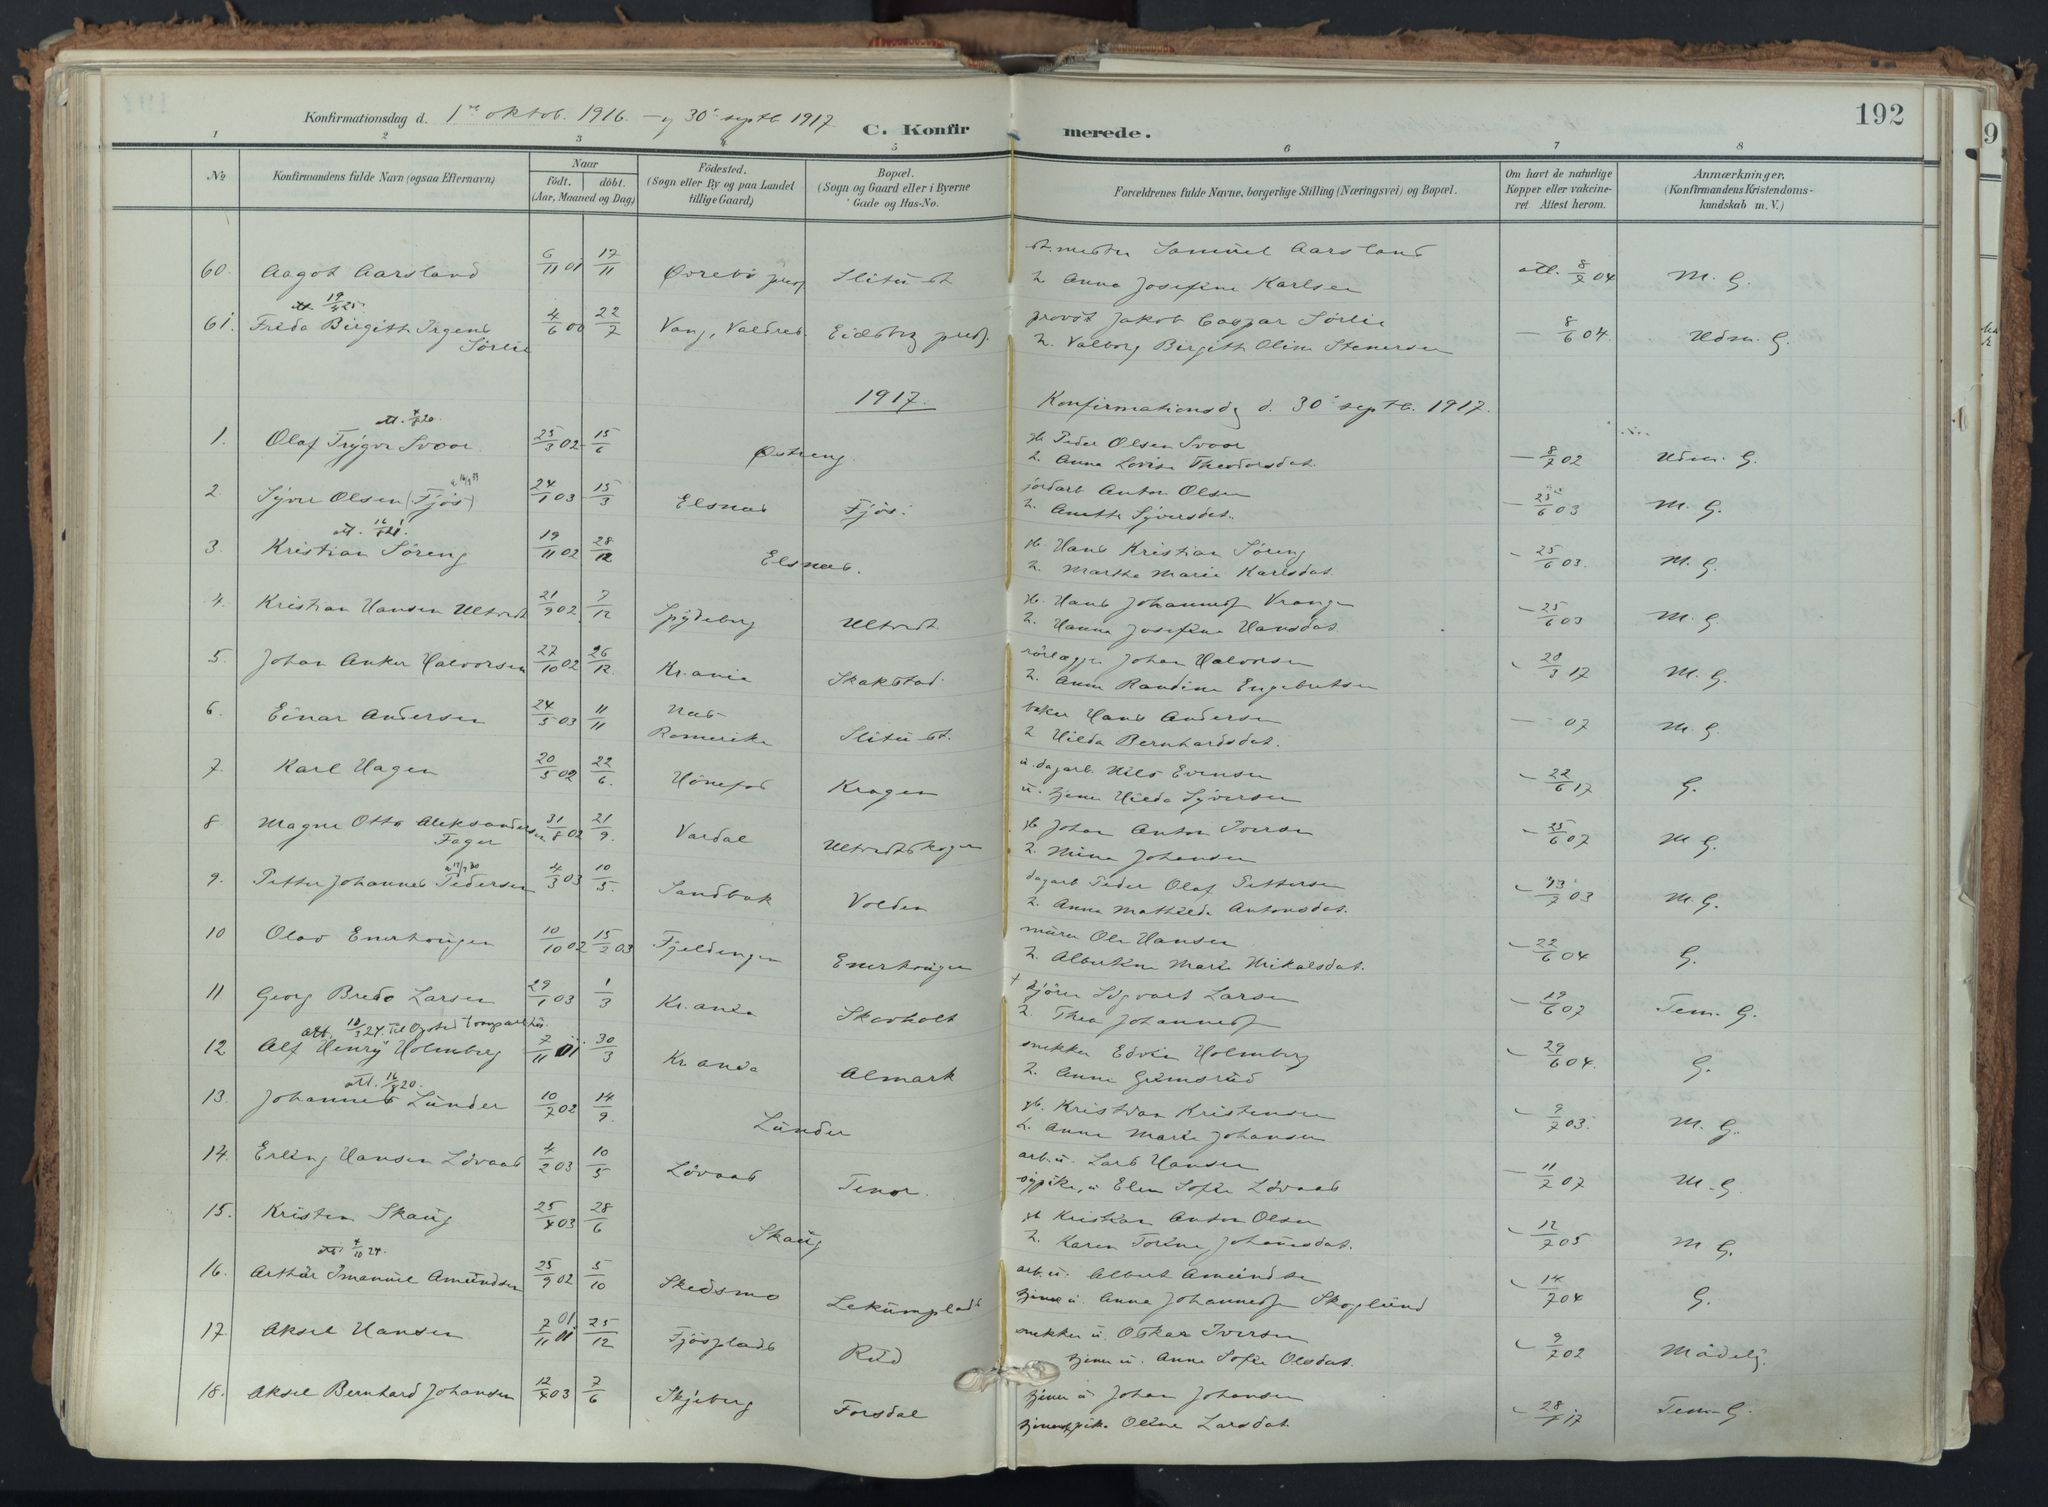 192
Konfirmationsdag d. 1ste oktob. 1916. – og 30' septb. 1917
C. Konfirmerede.
1 2 3 4 5 6 7 8
No. Konfirmandens fulde Navn (ogsaa Efternavn) Naar födt. döbt. (Aar, Maaned og Dag) Födested. (Sogn eller By og paa Landet tillige Gaard) Bopæl. (Sogn og Gaard eller i Byerne Gade og Hus-No. Forældrenes fulde Navne, borgerlige Stilling (Næringsvei) og Bopæl. Om havt de naturlige Kopper eller vakcineret. Attest herom. Anmærkninger. (Konfirmandens Kristendomskundskab m. V.)
60. Aagot Aarsland 6/11 01 17/11 Øvrebø Slitu st. st.mester Samuel Aarsland
h. Anna Josefine Karlsen att. 8/7 04 M. G.
att 19/4 25
61. Frida Birgith Irgens Sørlie 4/6 00 22/7 Vang, Valdres Eidsberg provst Jakob Caspar Sørlie
h. Valborg Birgith Olina Stenersen – 8/6 04. Udm. G.
1917. Konfirmationsdag d. 30' septb. 1917.
att. 4/8 20
1. Olaf Trygve Svoor 25/3 02 15/6 Østreng gb. Peder Olsen Svoor
h. Anna Lovise Theodorsdat. – 8/7 02 Udm. G.
2. Syver Olsen (Fjøs) 24/1 03 15/3 Elsnes Fjøs. jordarb Anton Olsen
h. Anette Syversdat. – 25/6 03 M. G.
3. Kristian Søreng 19/11 02 28/12 Elsnes. gb. Hans Kristian Søreng
h. Marthe Marie Karlsdat. – 25/6 03. M. G.
4. Kristian Hansen Ultvedt 21/9 02 7/12 Spydeberg Ultvedt. gb. Hans Johannes
h. Hanna Josefine Hansdat. – 25/6 03 M. G
5. Johan Anker Halvorsen 27/10 02 26/12. Kr.ania Skakstad. rørlægger Johan Halvorsen
h. Anna Randine Engebretsen – 20/3 17 M. G.
6. Einar Andersen 24/5 03 11/11 Nes Romerike Slitu st. baker Hans Andersen
h Hilda Bernhardsdat. – 07 M. G.
7. Karl Hagen 20/5 02 22/6. Hønefos Kragen u. dagarb. Nils Evensen
u. tjener Hilda Syversen – 22/6 17 G.
8 Magne Otto Aleksandersen Fager 31/8 02 21/9. Vardal Ultvedtskogen gb Johan Anton Iversen
h. Mina Johansen – 25/6 07 M. G.
9. Petter Johannes Pedersen 4/3 03 10/5. Sandbak Volden dagarb Peder Olaf Pettersen
h. Anna Mathilde Antonsdat. M. G.
10 Olav Enerhaugen 10/10 02 15/2 03 Fjeldengen Enerhaugen murer Ole Hansen
h. Albertine Marie Mikalsdat. – 22/6 04 G.
11 Georg Bredo Larsen 29/1 03 1/3 Kr.ania Skovholt † kjører Sigvart Larsen
h. Thea Johannesen – 19/6 07 Tem. G.
12 Alf Henry Holmberg 7/11 01 30/3 Kr.ania Almark snekker Edvin Holmberg
h. Anna Grimsrud – 29/6 04. G.
att. 16/8 20.
13. Johannes Lunder 10/7 02 14/9. Lunder gb. Kristian Kristensen
h. Anna Marie Johansen – 9/7 03. M. G.
14. Erling Hansen Løvaas 4/2 03 10/5 Løvaas Tenor. arb. u. Lars Hansen
sypike, u Elen Sofie Løvaas – 11/7 07 M. G.
15. Kristen Skaug 25/4 03 28/6 Skaug gb Kristian Anton Olsen
h. Karen Torine Johanesdat. – 12/7 05 M G.
att 4/10 24.
16. Arthur Imanuel Amundsen 25/9 02 5/10 Skedsmo Lekumplads arb. u. Albert Amundsen
tjener u. Anna Johannesen Skoglund – 14/7 04 G.
17. Aksel Hansen 7/11 01 25/12 Fjøsplads Rud snekker u. Oskar Iversen
tjener u. Anne Sofie Olsdat. – 9/7 02 Mådelig.
18. Aksel Bernhard Johansen 12/4 03 7/6 Skjeberg Forsdal tjener u Johan Johansen
Oline Larsdat. – 28/ 17 Tem. G.